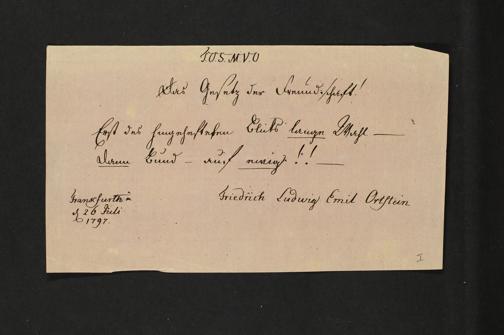 J.O.S.M.V.O
Das Gesetz der Freundschaft!
Erst des Eluts lange Wahl —
Dann Bund — auf ewig!! —
Frankfurth a
d 26 Juli
1797.
Friedrich Ludwig Emil Ortstein
I